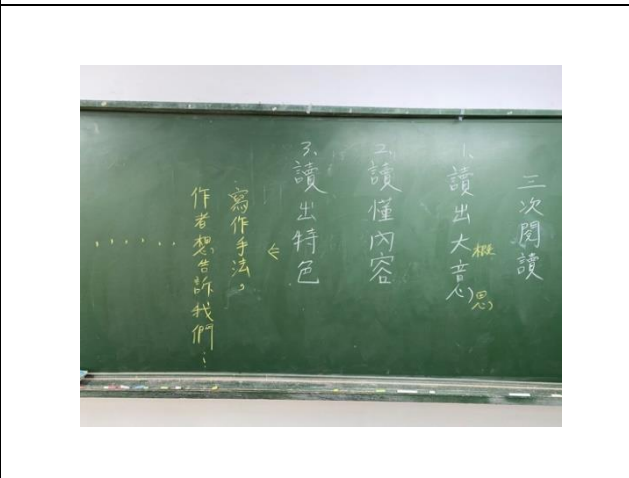 三次閱讀
1、讀出大意
概思
2、讀懂內容
3、讀出特色
寫作手法,
作者想告訴我們…